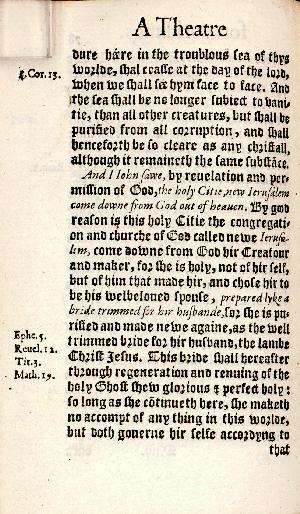 A Theatre
dure hére in the troublous sea of thys
1. Cor. 13.
worlde, shal ceasse at the day of the lord,
when we shall sée hym face to face. And
the sea shall be no longer subiect to vani-
tie, than all other creatures, but shall be
purified from all corruption, and shall
henceforth be so cleare as any christall,
although it remaineth the same substãce.
And I Iohn sawe, by reuelation and per-
mission of God, the holy Citie, new Ierusalem
come downe from God out of heauen. By good
reason is this holy Citie the congregati-
on and churche of God called newe Ierusa-
lem, come downe from God hir Creatour
and maker, for she is holy, not of hir self,
but of him that made hir, and chose hir to
be his welbeloued spouse, prepared lyke a
bride trimmed for hir husbande, for she is pu-
rified and made newe againe, as the well
Ephe. 5.
trimmed bride for hir husband, the lambe
Reuel. 12.
Christ Jesus. This bride shall hereafter
Tit. 3.
through regeneration and renuing of the
Math. 19.
holy Ghost shew glorious & perfect holy:
so long as she cõtinueth here, she maketh
no accompt of any thing in this worlde,
but doth gouerne hir selfe accordyng to
that